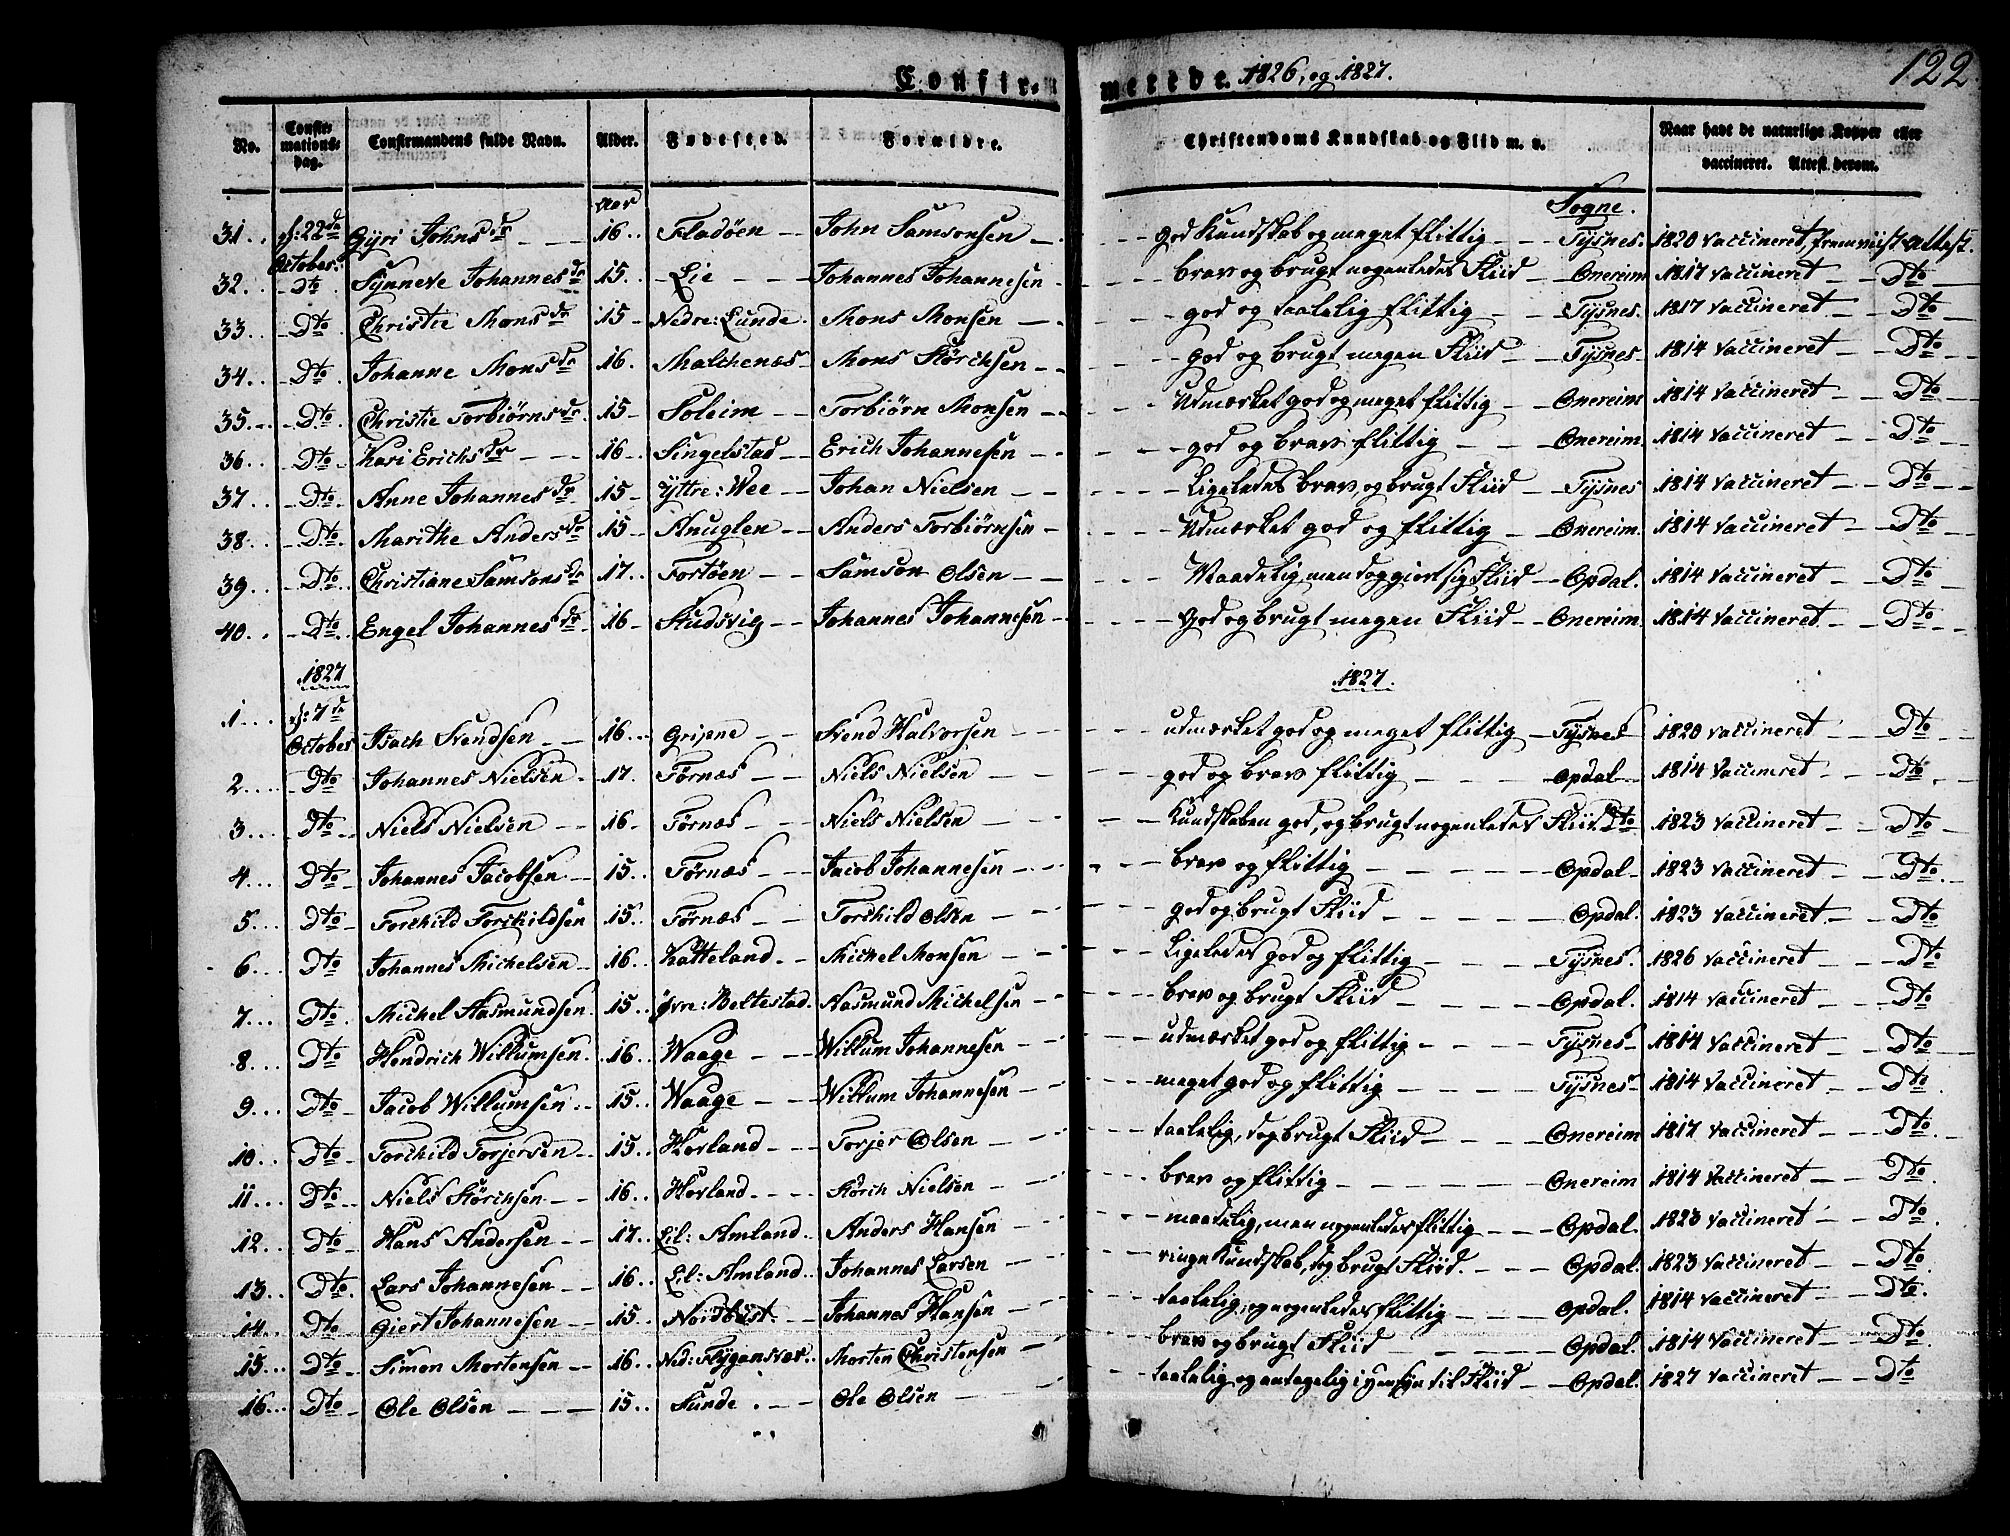 Confirmerede. 1826, og 1827. 122
No. Confirmationsdag. Confirmandens fulde Navn. Alder. Fødested. Forældre. Christendoms Kundskab og Flid m. v. Naar havt de naturlige Kopper eller vaccineret. Attest derom.
Aar Sogne.
31.. 22de October. Gÿri Johnsdr 16.. Fladöen John Samsonsen god Kundskab og meget flittig Tÿsnes. 1820 vaccineret, fremviist attest.
32. Dto Sÿnneve Johannesdr 15. Lie Johannes Johannesen brav og brugt nogenledes Fliid Onereim 1817 vaccineret Dto
33.. Dto Christie Monsdr 15 Nedre: Lunde Mons Monsen god og taalelig flittig Tÿsnes. 1817 vaccineret Dto
34.. Dto Johanne Monsdr 16. Malchenæs Mons Störchsen god og brugt megen Fliid Tÿsnes 1814 vaccineret Dto
35.. Dto Christie Torbiørnsdr 15 Soleim Torbiørn Monsen Udmærket god og meget flittig Onereim 1814 vaccineret Dto
36.. Dto Kari Erichsdr 16 Singelstad Erich Johannesen god og brav flittig Onereim 1814 vaccineret Dto
37.. Dto Anne Johannesdr 15 Ÿttre: Wee Johan Nielsen Ligeledes brav, og brugt Fliid Tÿsnes 1814 vaccineret Dto
38.. Dto Marithe Andersdr 15 Anuglen Anders Torbiørnsen Udmærket god og flittig Onereim. 1814 vaccineret Dto
39.. Dto Christiane Samsonsdr 17.. Fortöen Samson Olsen Maadelig, men dog giort sig Fliid Opdal. 1814 vaccineret Dto
40.. Dto Engel Johannesdr 16 Studsvig Johannes Johannesen god og brugt megen Fliid Onereim 1814 vaccineret Dto
1827 1827.
1... 7de October Isach Svendsen 16... Gripne Svend Halvorsen udmærket god og meget flittig Tÿsnes 1820 vaccineret Dto
2.... Dto Johannes Nielsen 17. Tørnæs Niels Nielsen god og brav flittig Opdal 1814 vaccineret Dto
3.... Dto Niels Nielsen 16 Tørnæs Niels Nielsen Kundskaben god, og brugt nogenledes Fliid Dto 1823 vaccineret Dto
4... Dto Johannes Jacobsen 15. Tørnæs Jacob Johannesen brav og flittig Opdal 1823 vaccineret Dto
5... Dto Torchild Torchildsen 15. Tørnæs Torchild Olsen god og brugt Fliid Opdal. 1823 vaccineret Dto
6... Dto Johannes Michelsen 16. Hatteland Michel Monsen Ligeledes god og flittig Tÿsnes. 1826 vaccineret Dto
7... Dto Michel Aasmundsen 15.. Øvre: Beltestad Aasmund Michelsen brav og brugt Fliid Opdal. 1814 vaccineret Dto
8... Dto Hendrich Willumsen 16. Waage Willum Johannesen udmærket god og flittig Tÿsnes 1814 vaccineret Dto
9... Dto Jacob Willumsen 15.. Waage Willum Johannesen meget god og flittig Tÿsnes 1814 vaccineret Dto
10.. Dto Torchild Torjersen 15.. Hovland Torjer Olsen taalelig, dog brugt Fliid Onereim 1817 vaccineret Dto
11... Dto Niels Störchsen 16.. Hovland Störch Nielsen brav og flittig Onereim 1814 vaccineret Dto
12... Dto Hans Andersen 17.. Lil: Amland Anders Hansen maadelig, men nogenledes flittig Opdal. 1823 vaccineret Dto
13... Dto Lars Johannesen 16. Lil: Amland Johannes Larsen ringe Kundskab, dog brugt Fliid. Opdal. 1823 vaccineret Dto
14.. Dto Giert Johannesen 15.. Nordbust Johannes Hansen taalelig, og nogenledes flittig Opdal. 1814 vaccineret Dto.
15... Dto Simon Mortensen 16.. Ned: Flÿgansvær Morten Christensen brav og brugt Fliid Opdal. 1814 vaccineret Dto
16... Dto Ole Olsen 15.. Sunde Ole Olsen taalelig og antagelig i Hensÿn til Fliid Opdal. 1827 vaccineret Dto